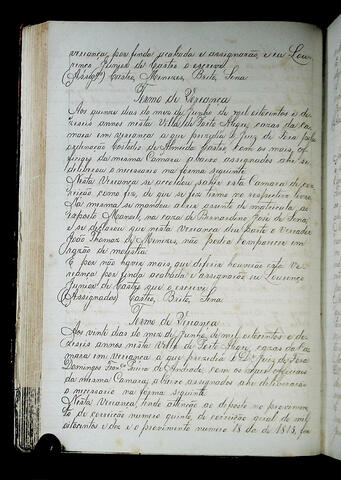 vereança por finda acabada e assignarão, e eu Lou-
renço Junior de Castro o escrevi
(Assig.os) Castro, Menezes, Brito, Sena
Termo de Vereança
Aos quinze dias do mez de Junho de mil oitocentos e de-
zeseis annos nesta Villa de Porto Alegre, cazas da Ca-
mara em vereança a que prezedio o Juiz de Fora pela
ordenação Custodio de Almeida Castro, com os mais, of-
ficiaes da mesma Camara abaixo assignados ahi se
deliberou o necessario na forma seguinte
Nesta Vereança se procedeu
Na mesma se mandou abrir assento de matricula ao
exposto Manoel, na caza de Bernardino José de Sena,
e se declarou que nesta vereança deu parte o Vereador
João Thomaz de Menezes, não podia comparecer em
razão de molestia.
E por não haver mais que deferir houverão esta Ve-
reança por finda acabada e assignarão eu Lourenço
Junior de Castro que o escrevi
(Assignados) Castro, Brito, Sena
Termo de Vereança
Aos vinte dias do mez de Junho de mil oitocentos e
dezeseis annos nesta Villa de Porto Alegre, cazas da Ca-
mara em vereança a que prezidio o Dr. Juiz de Fora
Domingos de Andrade, com os mais officiaes
da mesma Camara, abaixo assignados ahi deliberação
o necessario na forma seguinte
Nesta Vereança, tendo attenção ao deposto no provimen-
to de correição numero quinto, de correição geral de mil
oitocentos e dez e o provimento numero 18 da de 1815,